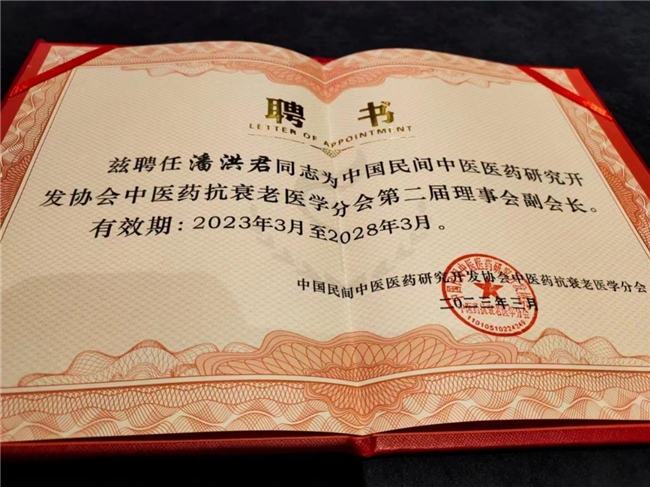 聘书
LETTER OF APPOINTMENT
兹聘任潘洪君同志为中国民间中医医药研究开
发协会中医药抗衰老医学分会第二届理事会副会长。
有效期：2023年3月至2028年3月。
中国民间中医医药研究开发协会中医药抗衰老医学分会
二〇二三年三月
中医药抗衰老医学分会